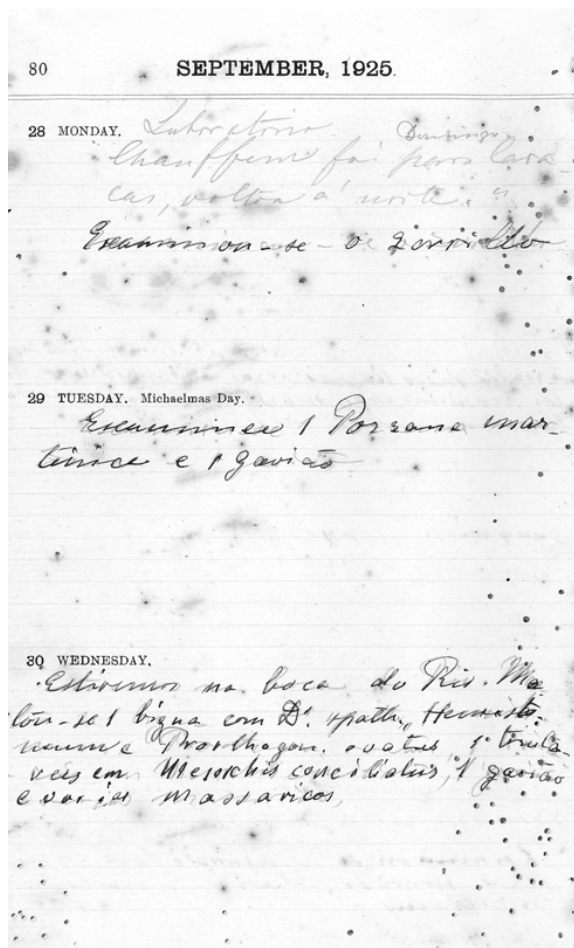 80 SEPTEMBER, 1925.
28 MONDAY. Laboratorio
Domingo
Chauffeur foi para Cara-
cas, voltou á noite. "
Examinou-se o zorrilho
29 TUESDAY. Michaelmas Day.
Examinei 1 Porzana mar-
tinica e 1 gavião
30 WEDNESDAY.
Estivemos na boca do Rio. Ma-
tou-se 1 bigua com D. spath.,
e ovatus 1
em conciliatus, 1 gavião
e varios massaricos,